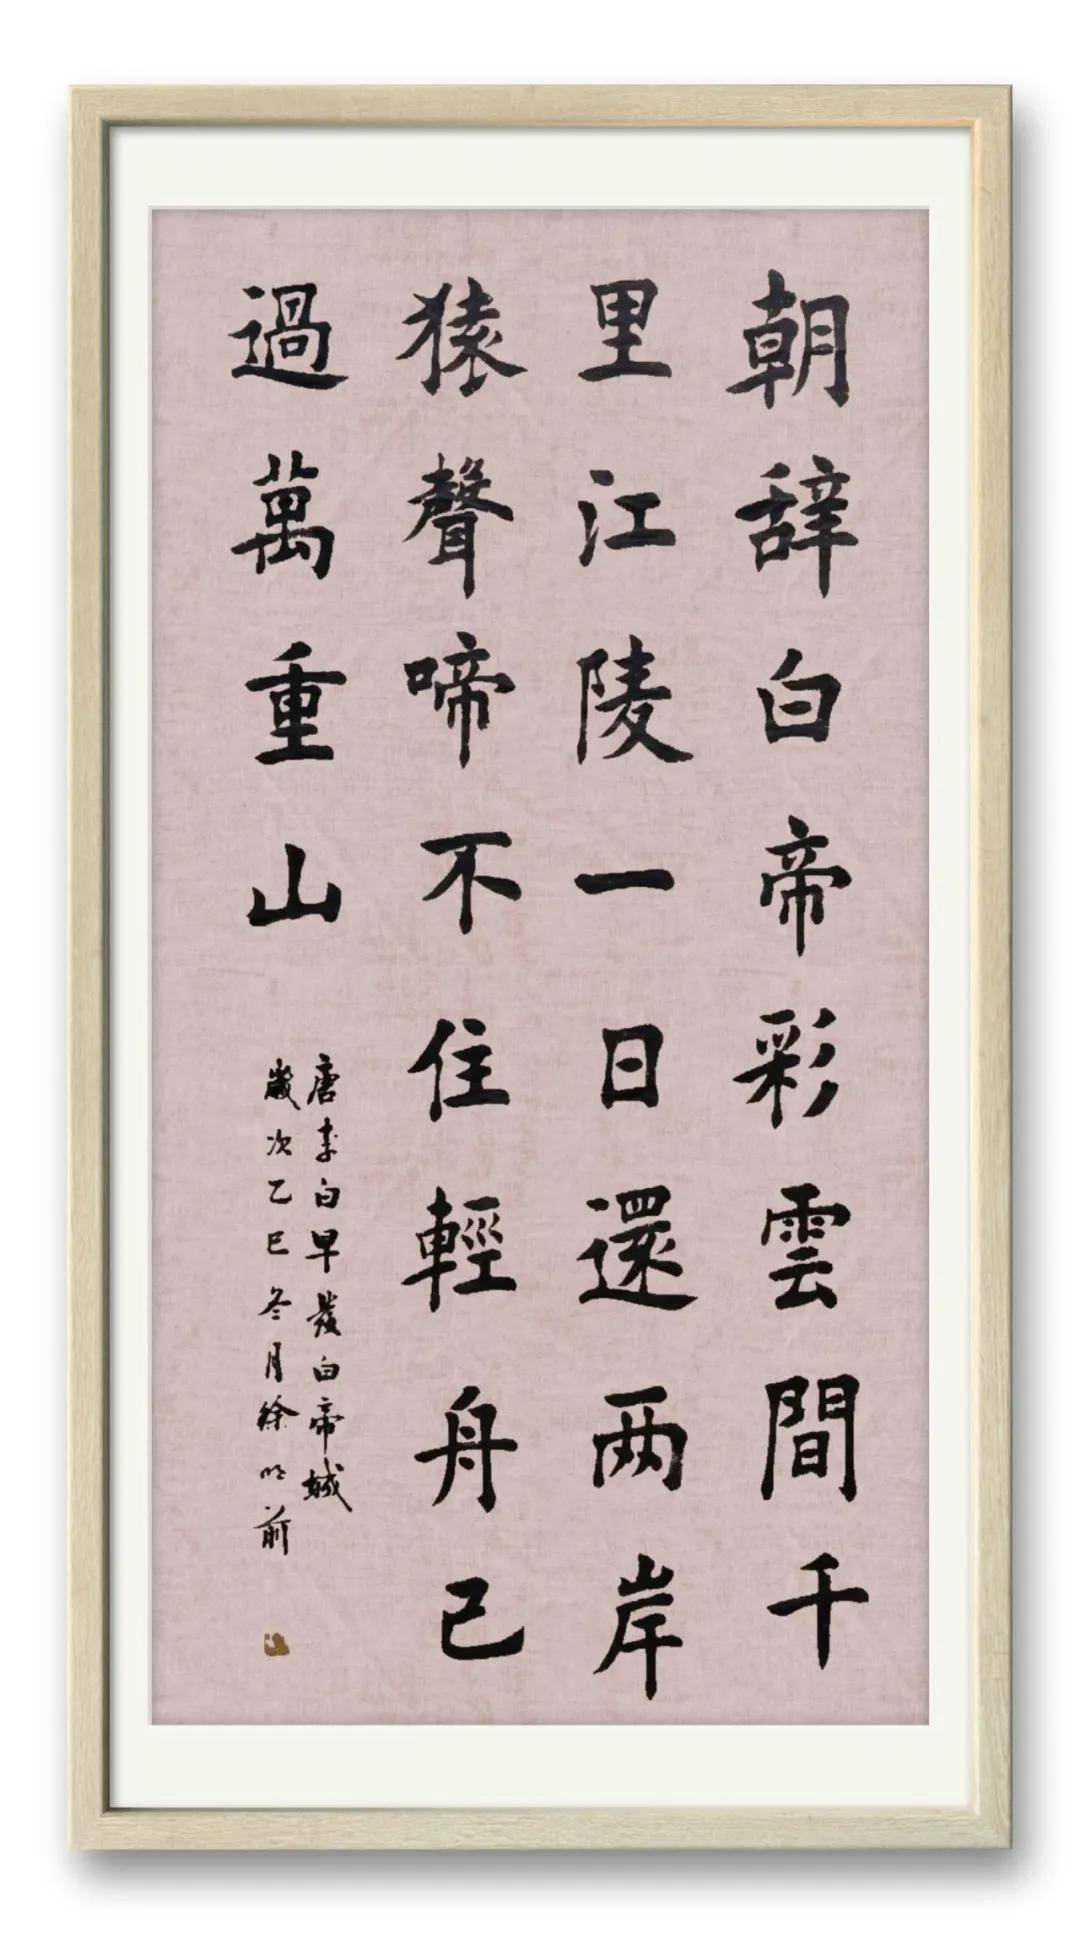 朝辞白帝彩雲間千
里江陵一日還两岸
猿聲啼不住輕舟已
過萬重山
唐李白早發白帝城
歲次乙巳冬月徐明前